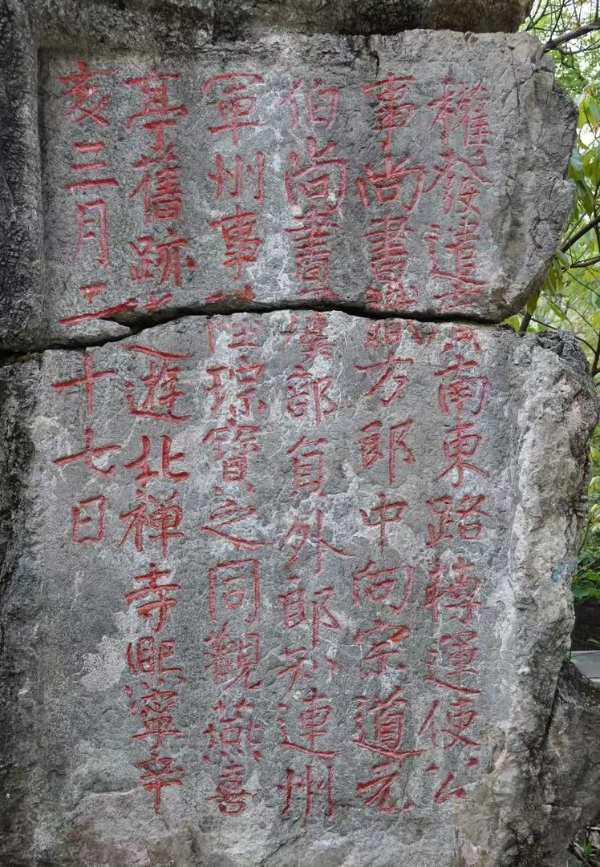 權發遣廣南東路轉運使公
事尚書職方郎中向宗道元
伯尚書虞部員外郎知連州
軍州事陸琮寶之同觀燕喜
亭舊跡遊北禪寺熙寧辛
亥三月二十七日